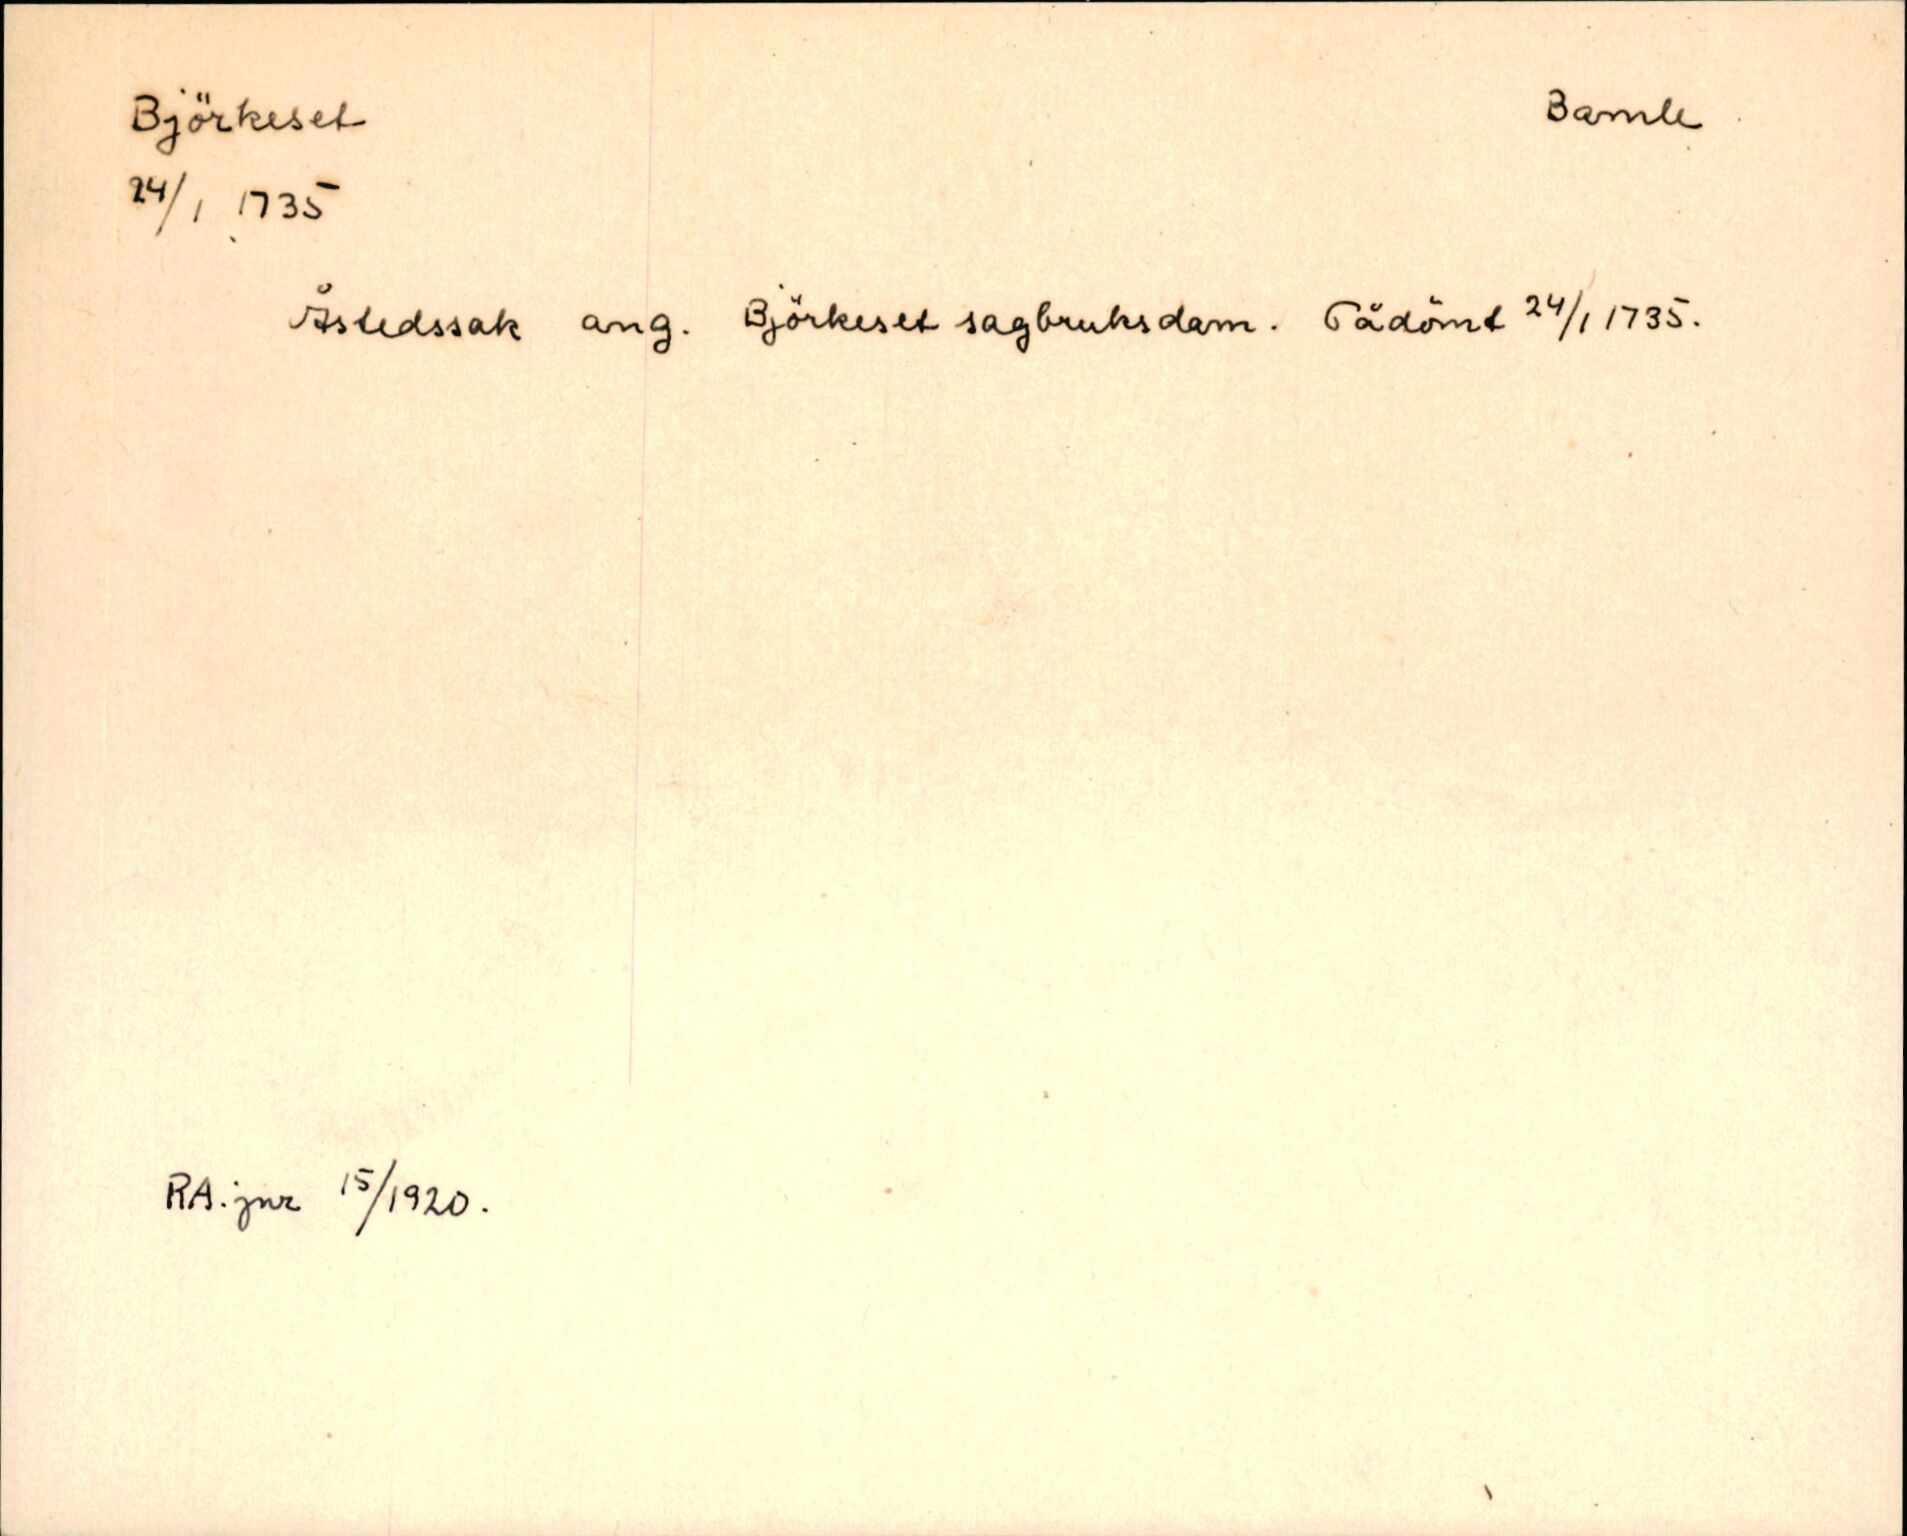 Björkeset
Bamle
24/1 1735
Åstedssak ang. Björkeset sagbruksdam. Pådömt 24/1 1735.
RA. jnr 15/1920.